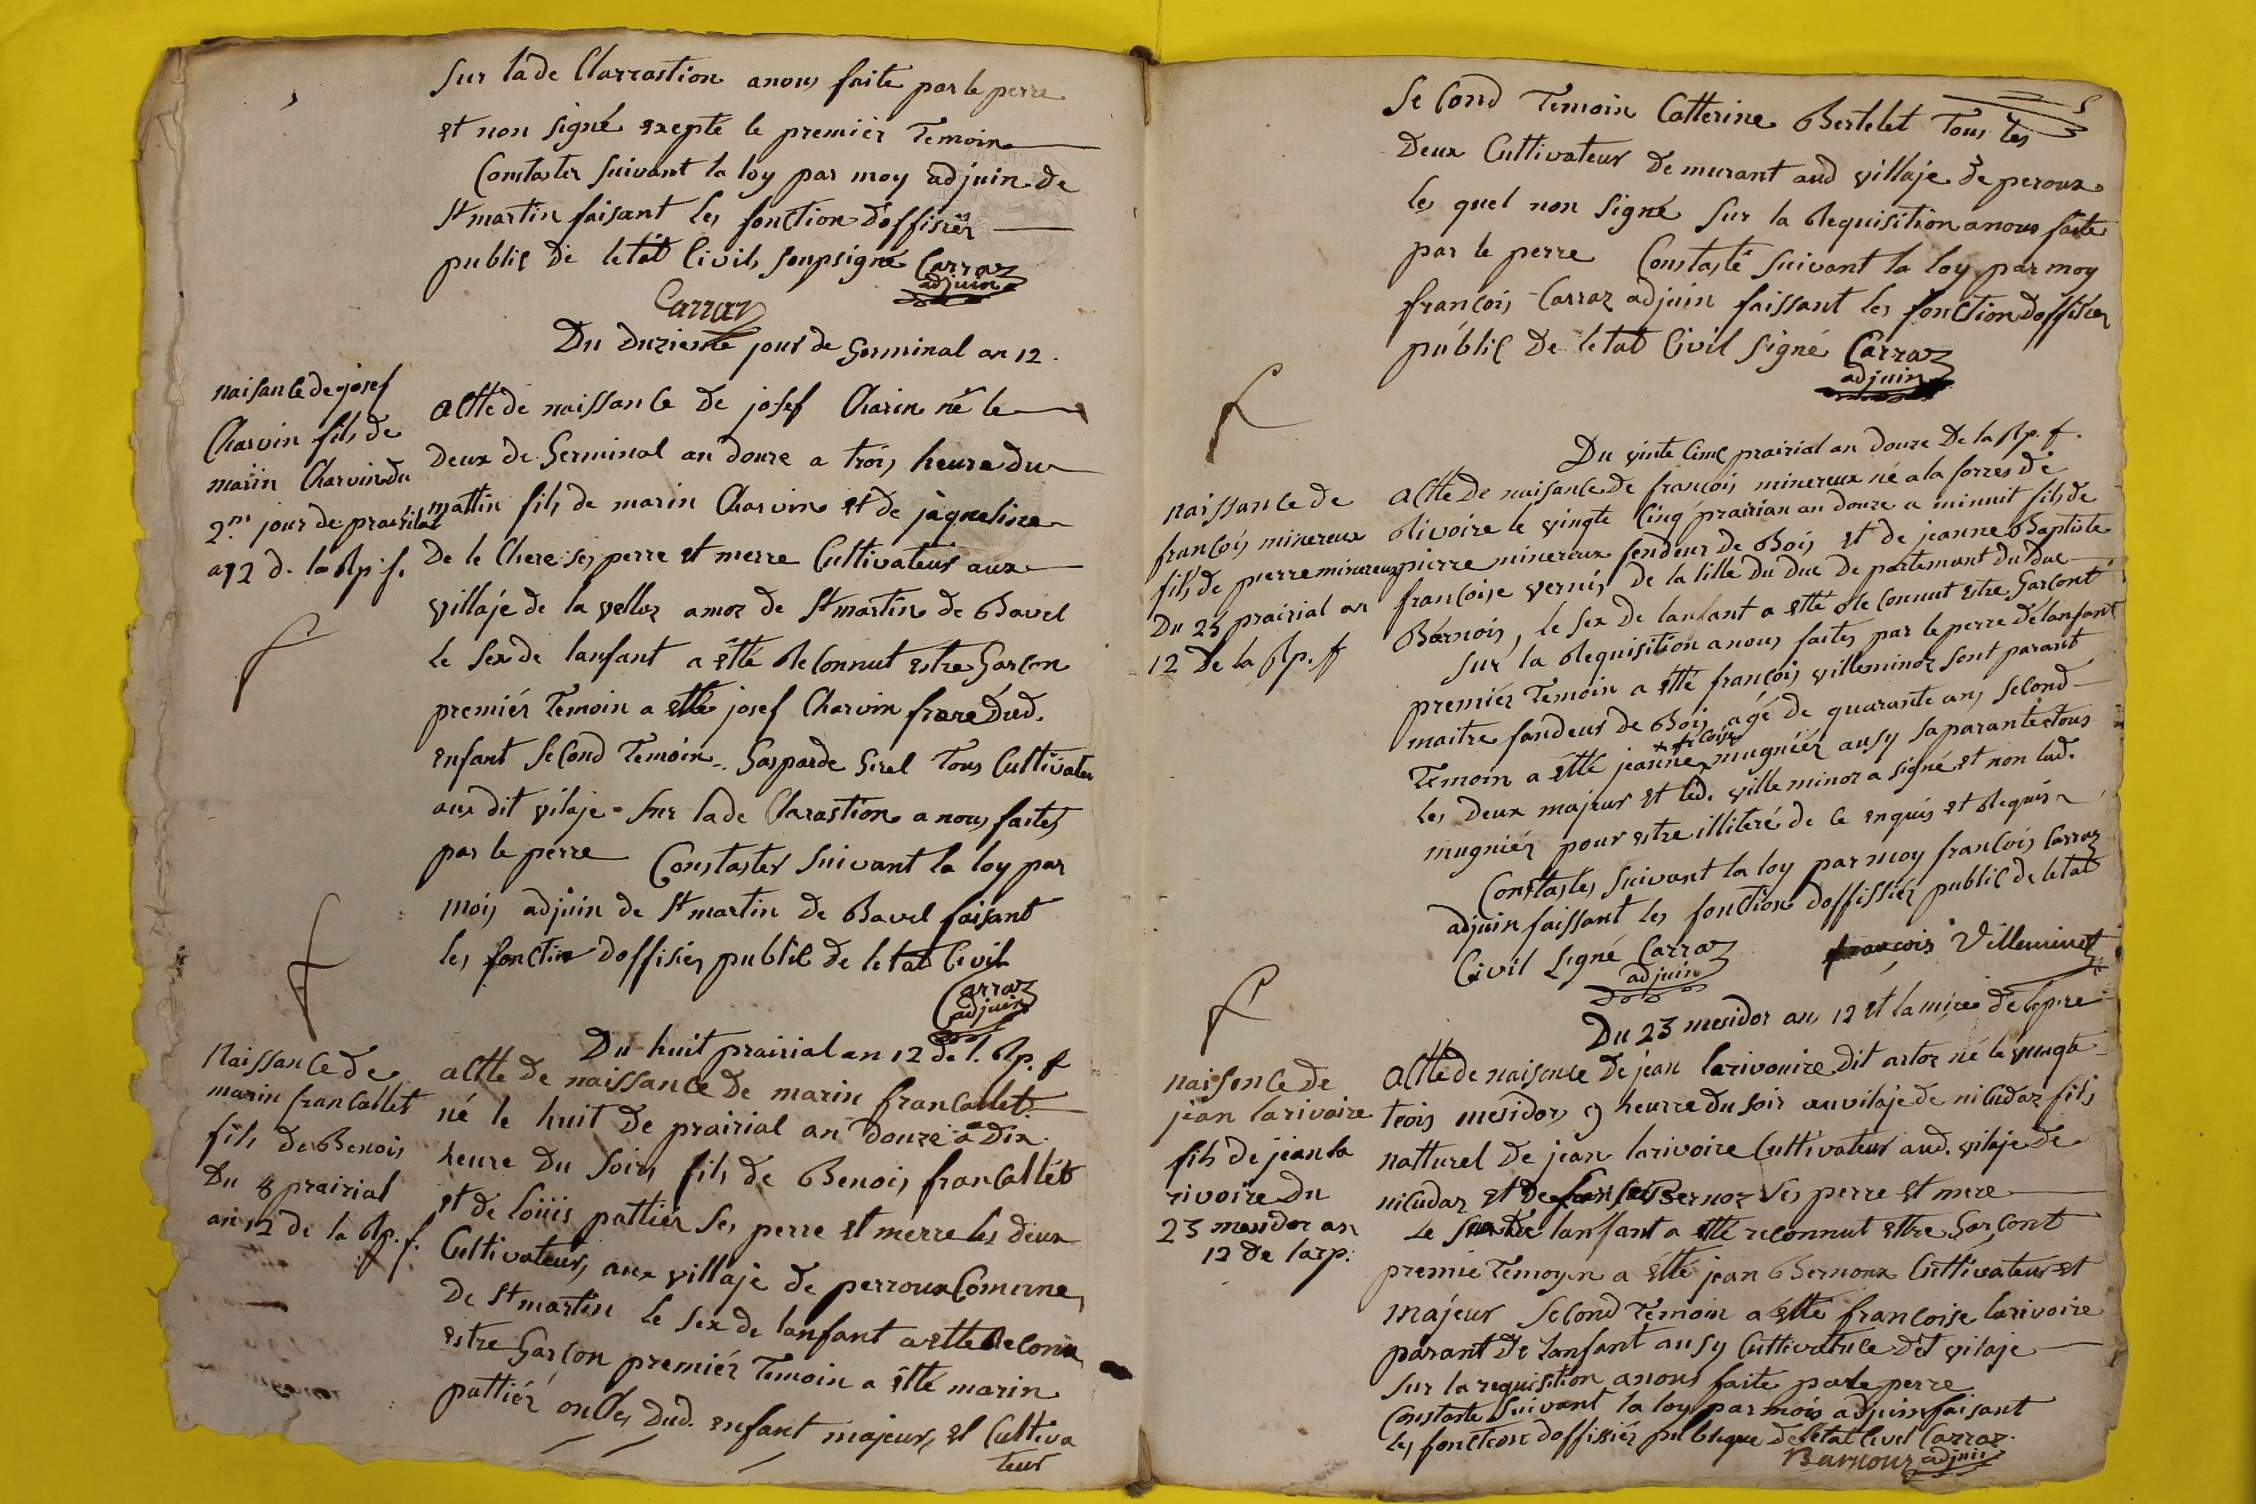 Sur lade Clarrastion anous faite par le perre
et non signé exepte le premiér Temoin
Constater suivant la loy par moy adjuin de
St martin faisant les fonction doffisiér
public de letat Civil, soupsigné Carraz
adjuin
Carraz
Du duzieme jour de Germinal an 12.
naisance de josef
Charvin fils de
marin Charvin du
2.me jour de prairial
a 12 d. la Rp. f.
Actte de naissance de josef Charin né le
Deux de Germinal an douze a trois heure du
mattin fils de marin Charvin et de jaqueline
De le Chere ses perre et merre Cultivateur aux
villaje de la velloz amoz de St martin de Bavel
le Sex de lanfant a etté Reconnut estre Garcon
premiér Temoin a etté josef Charvin frere dud.
enfant Second Temoin Gasparde Girel Tous Cultivater
aux dit vilaje Sur lade Clarastion a nous faites
par le perre Constater suivant la loy par
mois adjuin de St martin de Bavel faisant
les fonction doffisiér public de letat Civil
Carraz
adjuin
Du huit prairial an 12 de l. Rp. f
Naissance de
marin francallet
fils de Benois
Du 8 prairial
an 12 de la Rp. f.
actte de naissance de marin francallet.
né le huit de prairial an douze a Dix
heure du soir, fils de Benois francallet
et de loüis pattiér Ses perre et merre les deux
Cultivateur, aux villaje de perroux Comune,
De St martin le Sex de lanfant a ette Reconu
estre Garcon premiér Temoin a etté marin
pattiér oncles dud. enfant majeur, et Cultiva
teur
Second Temoin Catterine Bertelet Tous les
Deux Cultivateur demurant aud villaje de peroux
les quel non Signé Sur la Requisition anous faite
par le perre Constasté suivant la loy par moy
françois Carraz adjuin faissant les fonction doffisier
public De letat Civil Signé Carraz
adjuin
Du vinte Cinc prairial an douze De la Rp. f.
naissance de
françois minereux
fils de pierre minereux
Du 25 prairial an
12 De la Rp. f
Actte De naisance de françois minereux né a la forres de
Rivoire le vingte Cinq prairian an douze a minuit fils de
pierre minereux fendeur de Bois et de jeanne Baptiste
françoise vernis de la lille Du Duc De partemant du Duc
Barnois, le Sex de lanfant a etté Reconnut estre Garcont
Sur la Requisition anous faites par le perre de lanfant
premiér Temoin a etté françois villeminoz sont parant
maitre fandeur de Bois agé de quarante ans Second
Temoin a etté jeanne françoise mugniér ausy sa parante tous
les Deux majeur et led. villeminoz a signé et non lad.
mugniér pour estre illiteré de ce enquis et Requis
Constastes suivant la loy par moy françois Carraz
adjuin faissant les fonction doffissiér public de letat
Civil Signé Carraz
adjuin
françois Villeminot
Du 23 mesidor an 12 et lamice de lepire
naisence de
jean larivoire
fils de jean la
rivoire Du
23 mesidor an
12 de larp.
Actte de naisence De jean larivouire dit artoz né le vingte
trois mesidor, 9 heurre du soir au vilaje de nicudaz fils
natturel de jean larivoire Cultivateur aud. vilaje de
nicudaz et de Bernoz Ses perre et mere
Le Sex de lanffant a etté reconnut ettre Garçont
premie Temoyn a etté jean Bernoux Cultivateur et
majeur Second Temoin a etté francoise larivoire
parant de lanfant ausy Cultivatrice det vilaje
Sur la requisition anous faite parle perre
Constaste Suivant la loy par mois adjuin faisant
les fonction doffissiér publique de letat Civil Carraz.
Barnoux adjuin